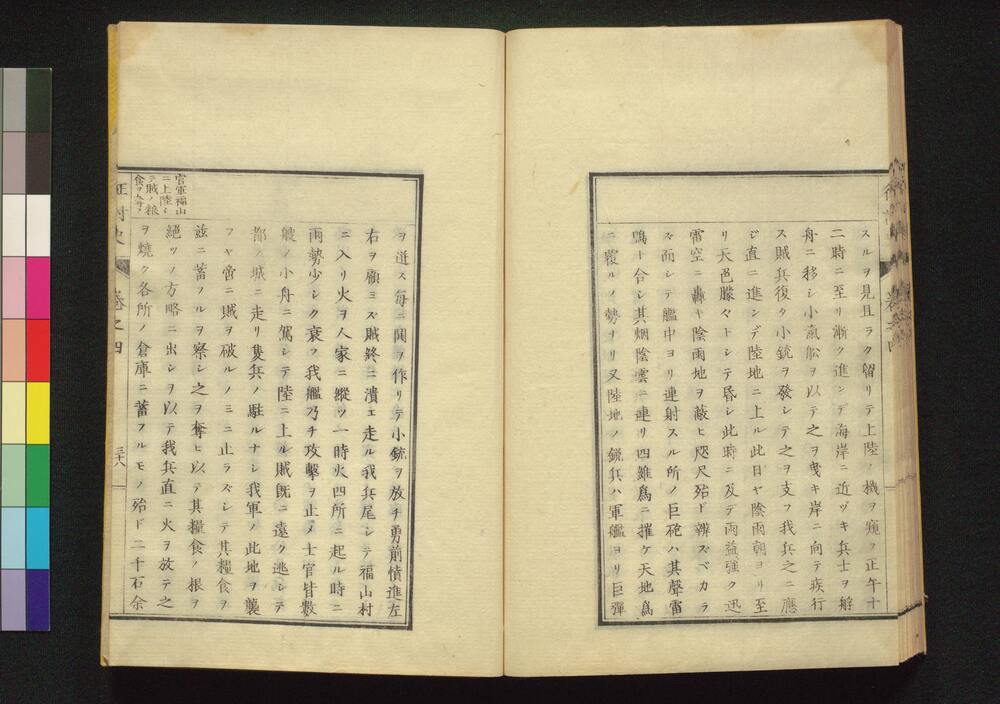 スルヲ見且ラク留リテ上陸ノ機ヲ窺フ正午十
二時ニ至リ漸ク進ンデ海岸ニ近ヅキ兵士ヲ艀
舟ニ移シ小滊舩ヲ以テ之ヲ曳キ岸ニ向テ疾行
ス賊兵復タ小銃ヲ發シテ之ヲ支フ我兵之ニ應
ジ直ニ進ンデ陸地ニ上ル此日ヤ陰雨朝ヨリ至
リ天色朦々トシテ昏シ此時ニ及デ雨益強ク迅
雷空ニ轟キ陰雨地ヲ蔽ヒ咫尺殆ド辨ズベカラ
ズ而シテ艦中ヨリ連射スル所ノ巨砲ハ其聲雷
鳴ト合シ其烟陰雲ニ連リ四維爲ニ摧ケ天地爲
ニ覆ルノ勢ナリ又陸地ノ鋭兵ハ軍艦ヨリ巨彈
ヲ送ス毎ニ鬨ヲ作リテ小銃ヲ放チ勇前憤進左
右ヲ顧ミズ賊終ニ潰エ走ル我兵尾シテ福山村
ニ入リ火ヲ人家ニ縱ツ一時火四所ニ起ル時ニ
雨勢少シク衰フ我艦乃チ攻擊ヲ止メ士官皆數
艘ノ小舟ニ駕シテ陸ニ上ル賊既ニ遠ク逃レテ
都ノ城ニ走リ隻兵ノ駐ルナシ我軍ノ此地ヲ襲
フヤ啻ニ賊ヲ破ルノミニ止ラズシテ其糧食ヲ
茲ニ蓄フルヲ察シ之ヲ奪ヒ以テ其糧食ノ根ヲ
絕ツノ方略ニ出シヲ以テ我兵直ニ火ヲ放テ之
ヲ燒ク各所ノ倉庫ニ蓄フルモノ殆ド二千石余
官軍福山
ニ上陸シ
テ賊ノ粮
食ヲ
征討史
卷之四
三十六